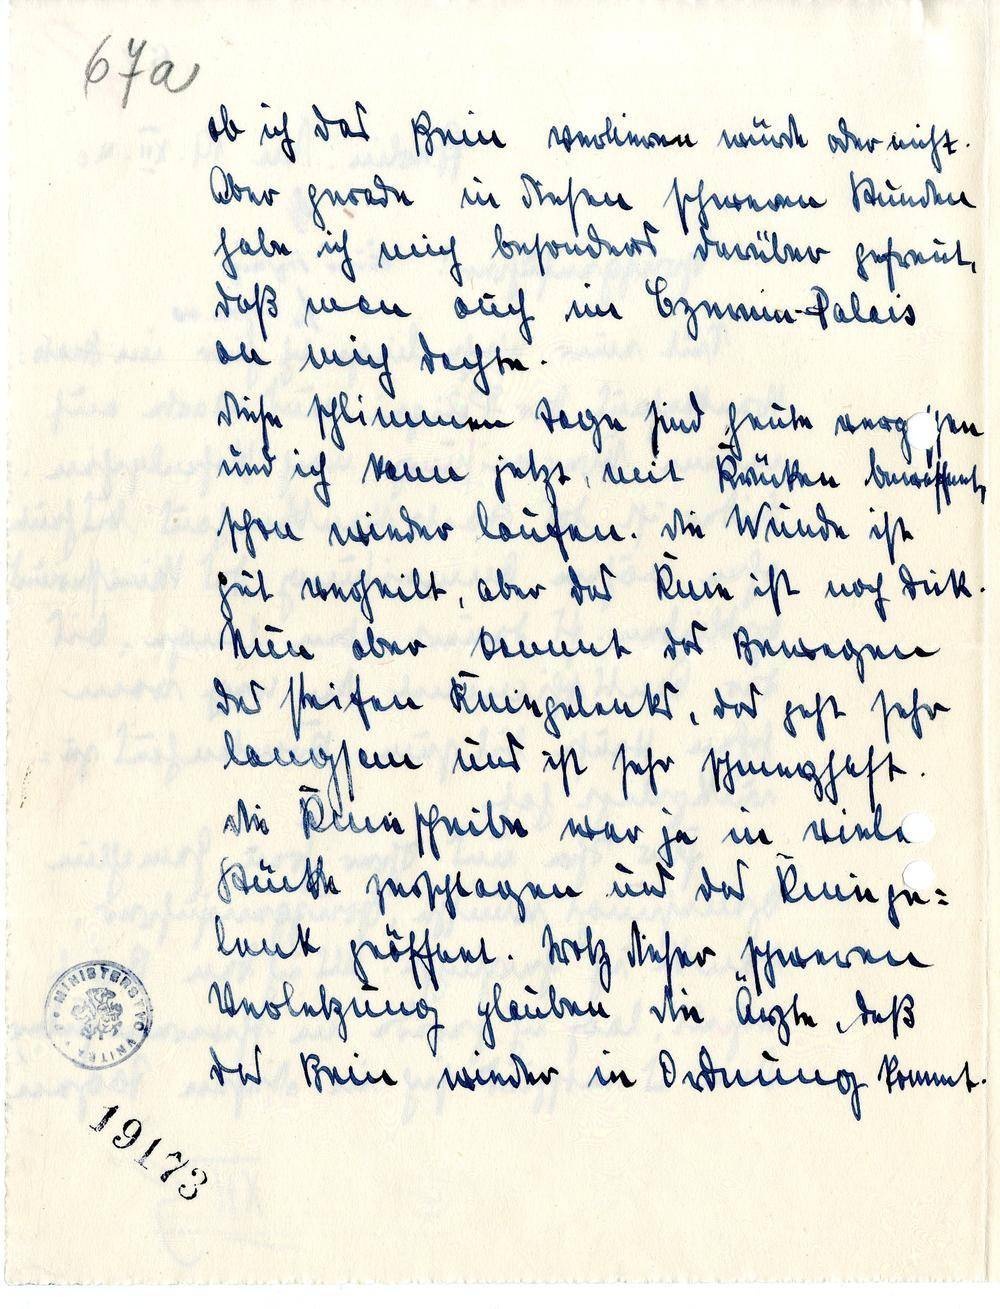 67a
ob ich das Bein verlieren würde oder nicht.
Aber gerade in diesen schweren Stunden
habe ich mich besonders darüber gefreut,
daß man auch im Czernin-Palais
an mich dachte.
Diese schlimmen Tage sind heute vergessen
und ich kann jetzt, mit Krücken bewaffnet,
schon wieder laufen. Die Wunde ist
gut verheilt, aber das Knie ist noch dick.
Nun aber kommt das Bewegen
des steifen Kniegelenks, das geht sehr
langsam und ist sehr schmerzhaft.
Die Kniescheibe war ja in viele
Stücke zerschlagen und das Kniege=
lenk geöffnet. Trotz dieser schweren
Verletzung glauben die Ärzte, daß
das Bein wieder in Ordnung kommt.
MINISTERSTVO VNITRA
19173